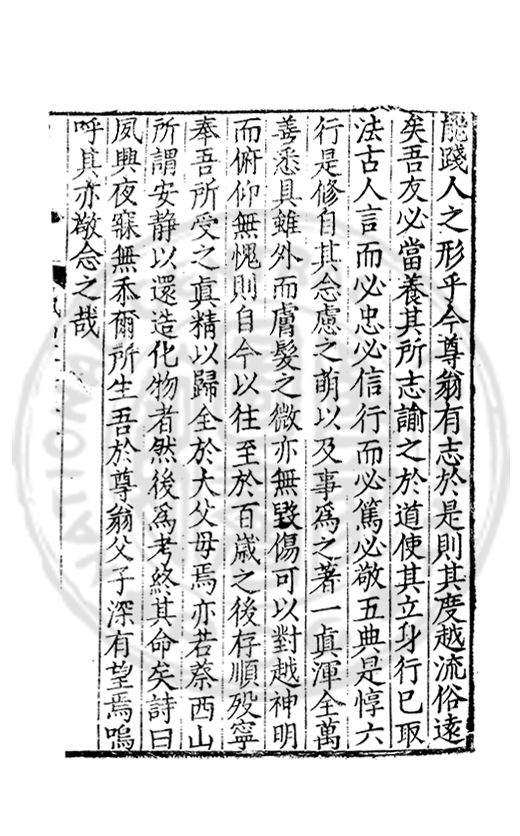 能踐人之形乎今尊翁有志於是則其度越流俗遠
矣吾友必當養其所志諭之於道使其立身行已取
法古人言而必忠必信行而必篤必敬五典是惇六
行是修自其念慮之萌以及事爲之著一眞渾全萬
善悉具雖外而膚髮之微亦無毀傷可以對越神明
而俯仰無愧則自今以往至於百歲之後存順歿寧
奉吾所受之眞精以歸全於大父母焉亦若蔡西山
所謂安静以還造化物者然後爲考終其命矣詩曰
夙興夜寐無忝爾所生吾於尊翁父子深有望焉嗚
呼其亦敬念之哉